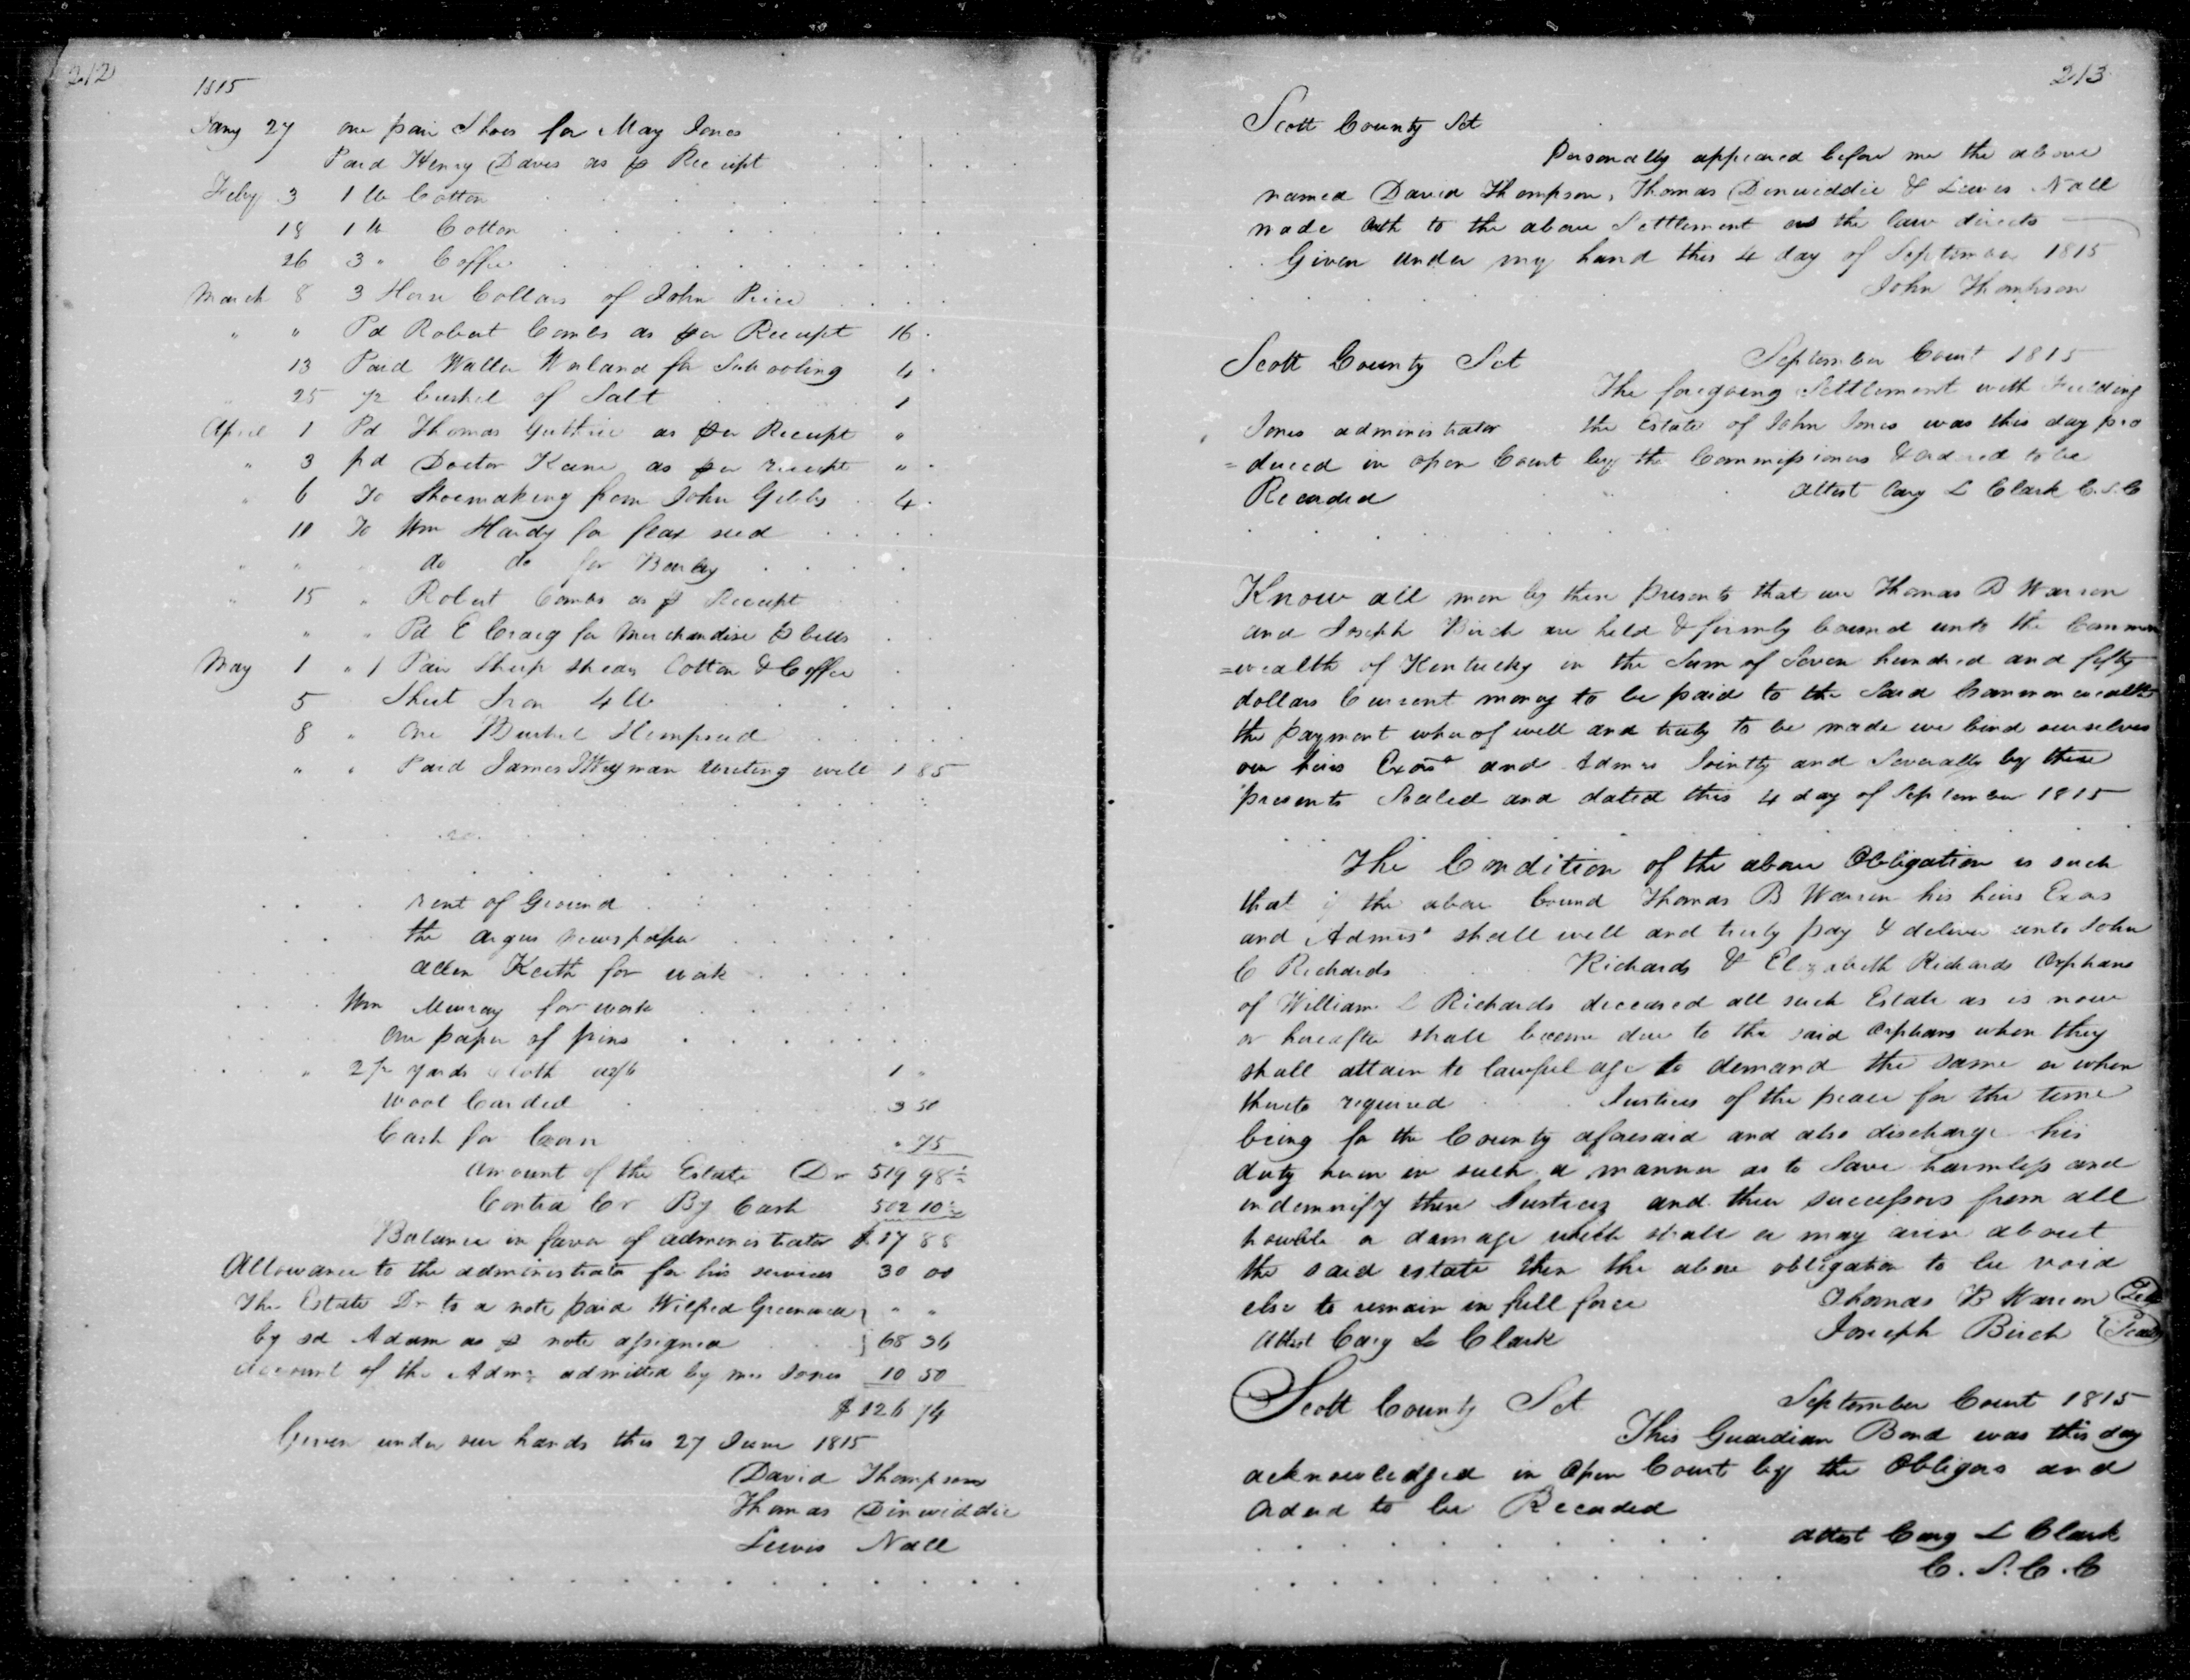 212
1815
Jany 27 one pair Shoes for May Jones
Paid Henry Davis as p Receipt
Feby 3 1 lb Cotton
18 1 lb Cotton
26 3 " Coffee
March 8 3 Horse Collars of John Price
" " Pd Robert Combs as per Receipt 16
13 Paid Walter for Schooling 4
25 1/2 bushel of Salt 1
April 1 Pd Thomas Guthrie as per Receipt "
" 3 pd Doctor Kane as per receipt "
" 6 To Shoemaking from John Gibbs 4
10 To Wm Hardy for flax seed
" " do do for Barley
" 15 " Robert Combs as p Receipt
" " Pd E Craig for Merchandise p bills
May 1 " 1 Pair Sheep shears Cotton & Coffee
5 Sheet Iron 4 lb
8 " One Bushel Hempseed
" " Paid James Wayman writing will 1 85
rent of Ground
the argus Newspaper
allen Keith for work
Wm Murray for work
One paper of pins
" 2 1/2 yards cloth 1 "
Wool Carded 3 50
Cash for Corn " 75
amount of the Estate Dr 519 98 1/2
Contra Cr By Cash 502 10 1/2
Balance in favor of administrator $ 17 88
Allowance to the administrator for his services 30 00
The Estate Dr to a note paid Wilfred } " "
by sd Adam as p note assigned } 68 36
account of the Admr admitted by mrs Jones 10 50
$ 126 74
Given under our hands this 27 June 1815
David Thompson
Thomas Dinwiddie
Lewis Nall
213
Scott County Sct
Personally appeared before me the above
named David Thompson, Thomas Dinwiddie & Lewis Nall
made oath to the above Settlement as the law directs
Given under my hand this 4 day of September 1815
John Thompson
Scott County Sct September Court 1815
The foregoing Settlement with Fielding
Jones administrator the Estate of John Jones was this day pro
= duced in open Court by the Commissioners & ordered to be
Recorded attest Cary L Clark C.S.C
Know all men by these presents that we Thomas B Warren
and Joseph Birch are held & firmly bound unto the Common
=wealth of Kentucky in the Sum of Seven hundred and fifty
dollars Current money to be paid to the Said Commonwealth
the payment whereof well and truly to be made we bind ourselves
our heirs Exors and Admrs Jointly and Severally by these
presents Sealed and dated this 4 day of September 1815
The Condition of the above Obligation is such
that if the above bound Thomas B Warren his heirs Exors
and Admrs shall well and truly pay & deliver unto John
C Richards Richards & Elizabeth Richards Orphans
of William L Richards deceased all such Estate as is now
or hereafter shall become due to the said Orphans when they
shall attain to lawful age to demand the same or when
thereto required Justices of the peace for the time
being for the County aforesaid and also discharge his
duty herein in such a manner as to Save harmless and
indemnify then Justices and their successors from all
trouble or damage which shall or may arise about
the said estate then the above obligation to be void
else to remain in full force Thomas B Warren Seal
attest Cary L Clark Joseph Birch Seal
Scott County Sct September Court 1815
This Guardian Bond was this day
acknowledged in Open Court by the Obligors and
Ordered to be Recorded
attest Cary L Clark
C. S. C. C